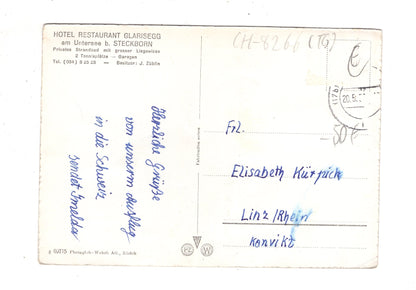 HOTEL RESTAURANT GLARISEGG
am Untersee b. STECKBORN
Privater Strandbad mit grosser Liegewiese
2 Tennisplätze – Garagen
Besitzer: J. Züblin
CH-8266 (TG)
€
-50€
Herzliche Grüße
von unserm Ausflug
in die Schweiz
sendet Imelda
Frl.
Elisabeth
Linz/Rhein
Konvikt